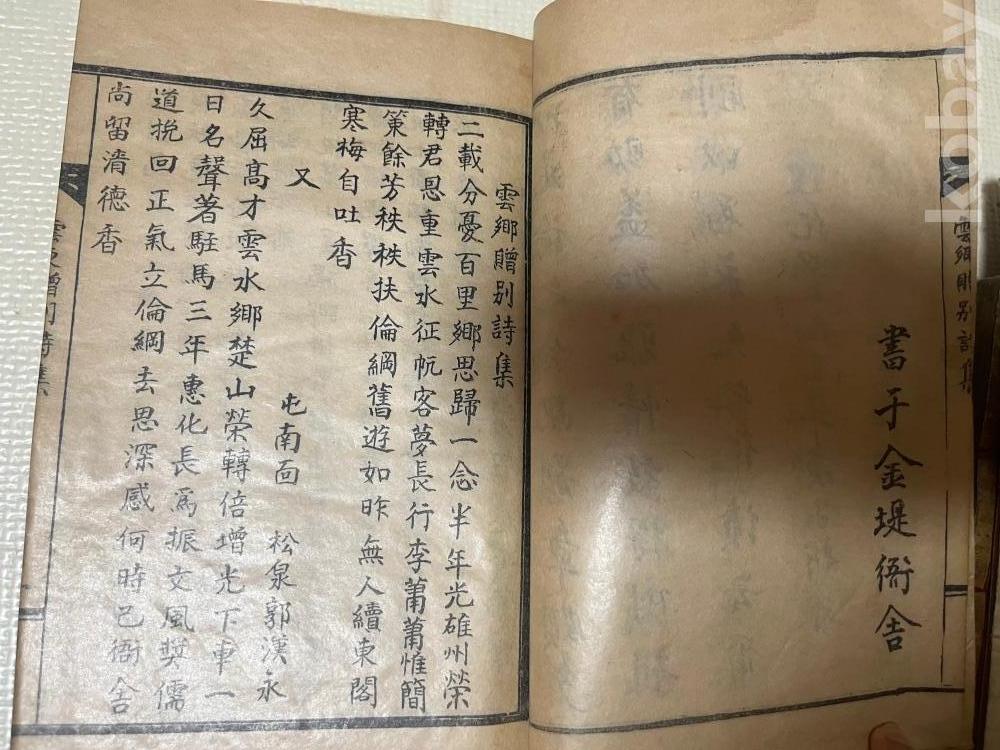 雲鄉贈别詩集
書于金堤衙舍
雲鄉贈别詩集
二載分憂百里鄉思歸一念半年光碓州榮
轉君恩重雲水征帆客夢長行李蕭蕭惟簡
策餘芳秩秩扶倫綱舊遊如昨無人續東閣
寒梅自吐香
又
屯南面 松泉郭漢永
久屈高才雲水鄉楚山榮轉倍增光下車一
日名聲著駐馬三年惠化長爲振文風奬儒
道挽回正氣立倫綱去思深感何時已衙舍
尚留淸德香
kobay